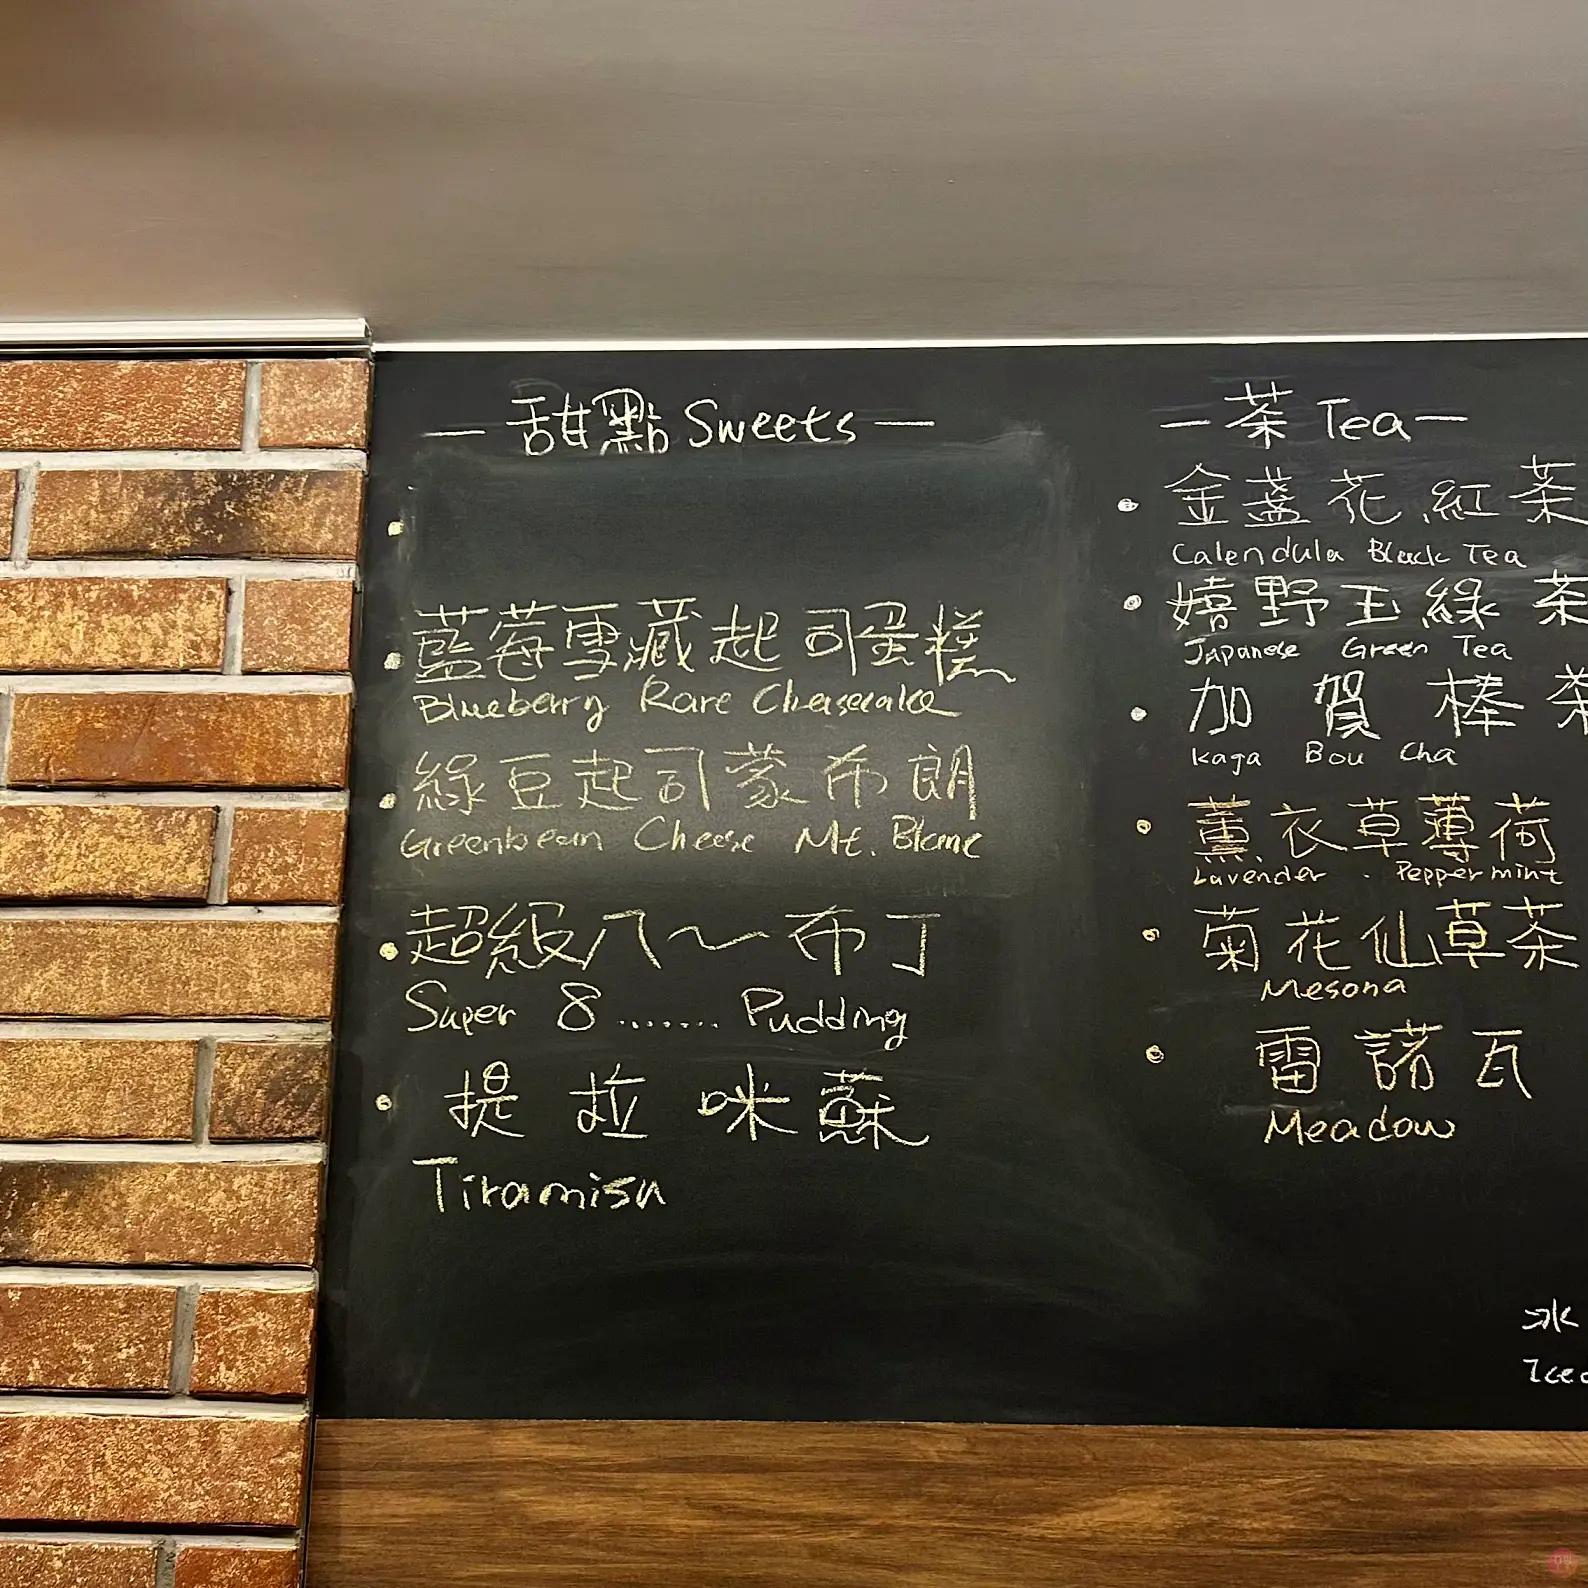 — 甜點 Sweets —
藍莓雪藏起司蛋糕
Blueberry Rare Cheasecake
綠豆起司蒙布朗
Greenbean Cheese Mt. Blanc
超級八〜布丁
Super 8 ....... Pudding
提拉咪蘇
Tiramisu
— 茶 Tea —
金盞花紅茶
Calendula Black Tea
嬉野玉綠茶
Japanese Green Tea
加賀棒茶
Kaga Bou Cha
薰衣草薄荷
Lavender . Peppermint
菊花仙草茶
Mesona
雷諾瓦
Meadow
冰
Iced